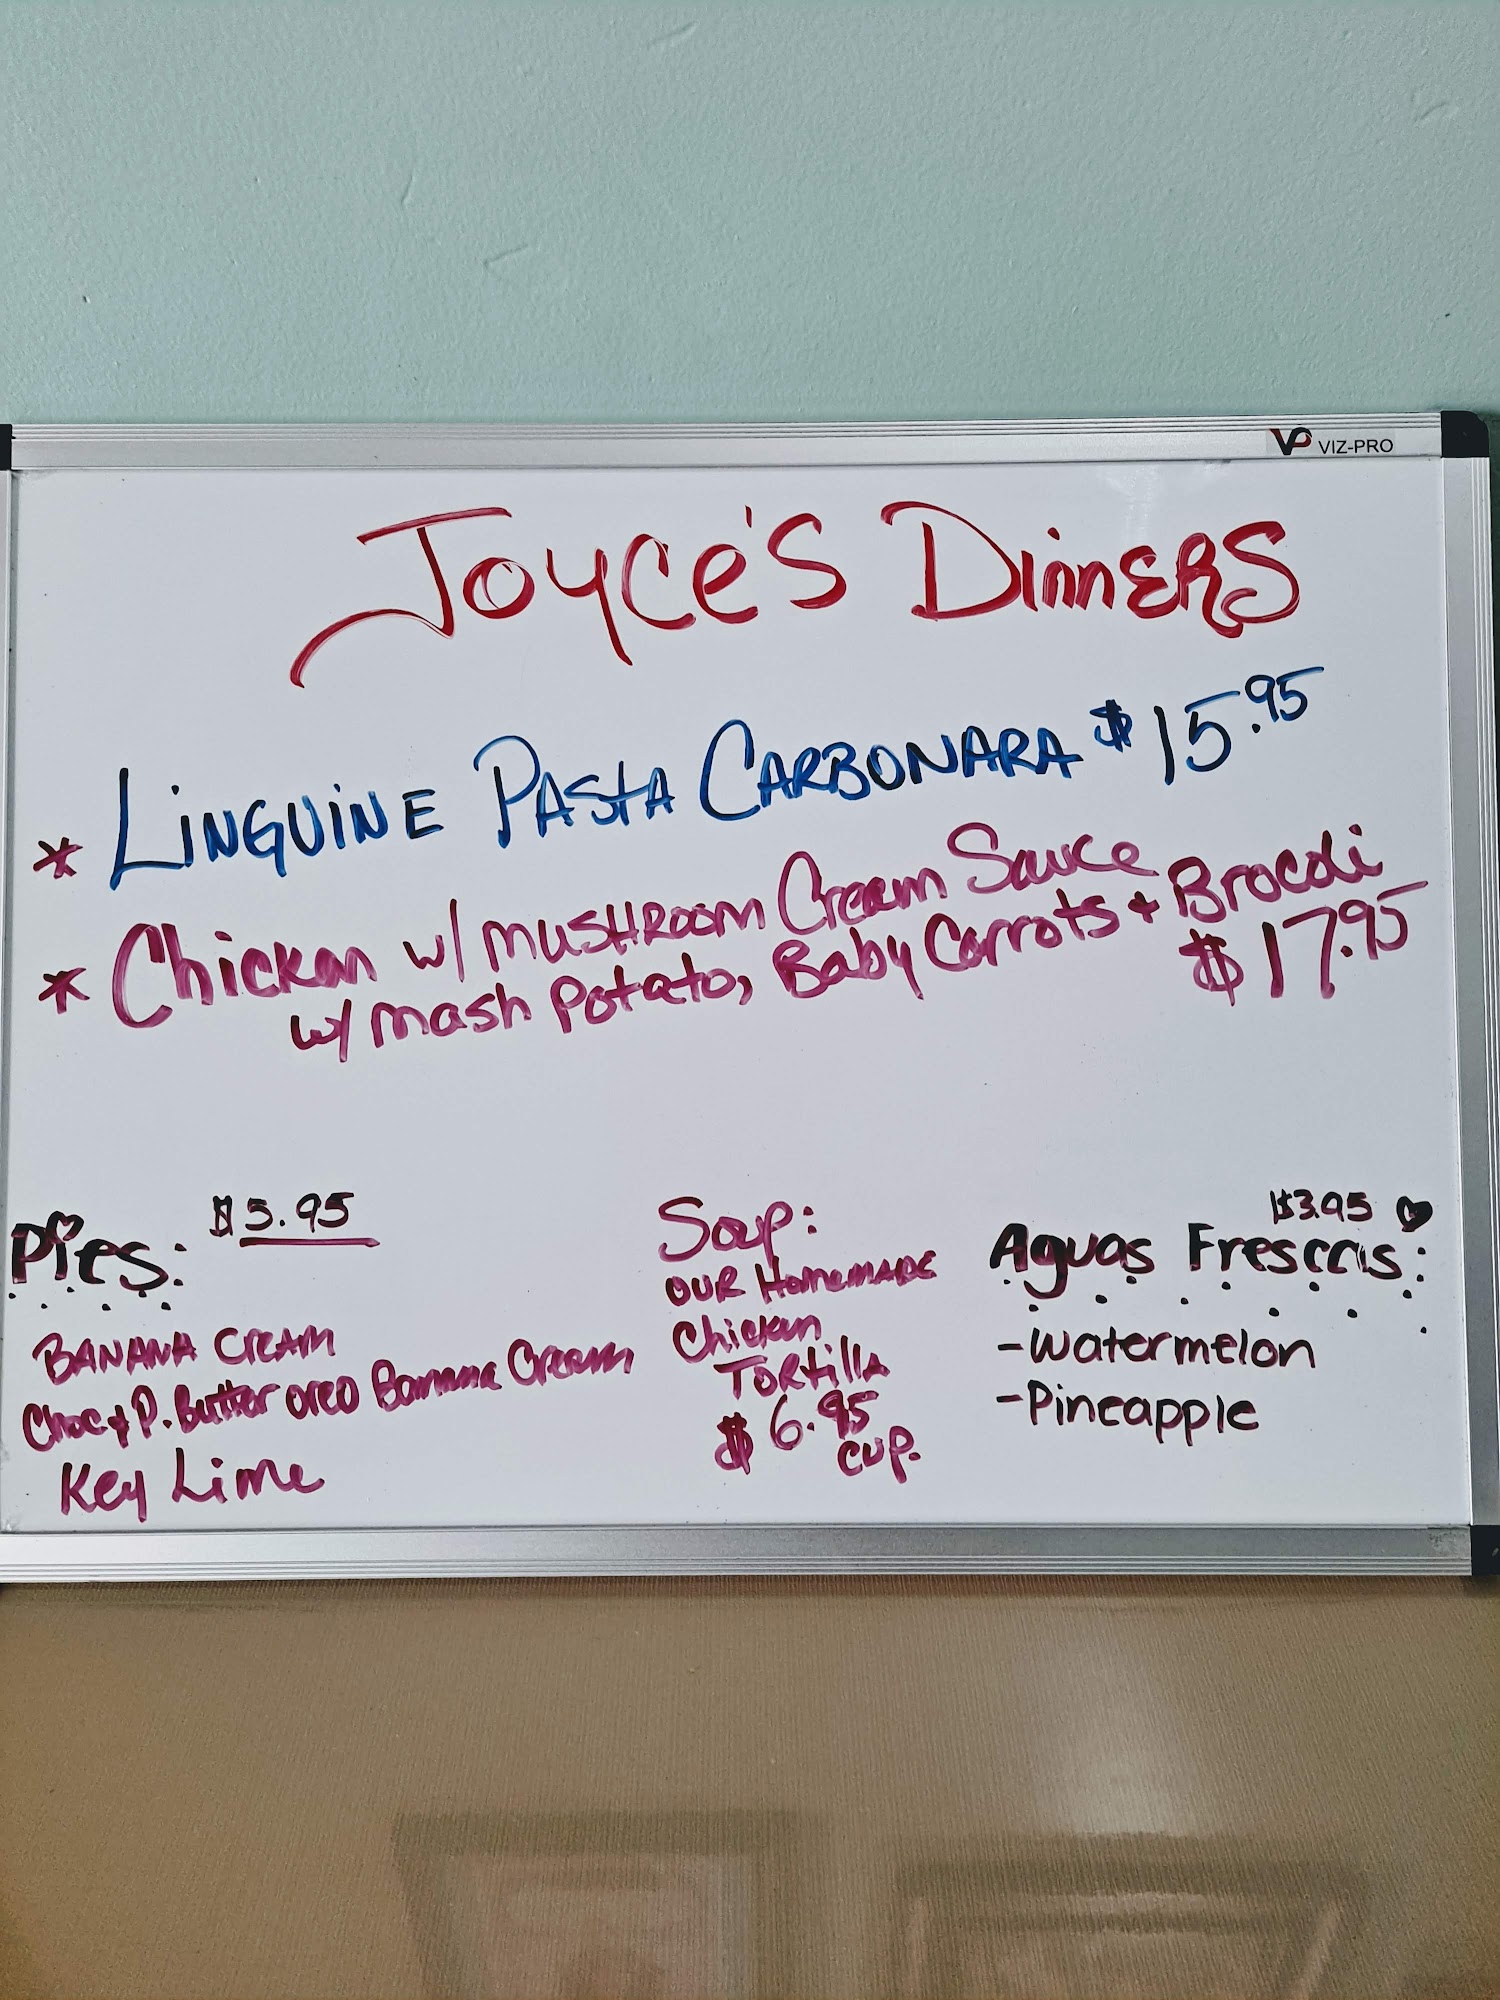 VP VIZ-PRO
Joyce's Dinners
* Linguine Pasta Carbonara $15.95
* Chicken w/ mushroom Cream Sauce
w/ mash potato, Baby Carrots + Brocoli
$17.95
Pies: $5.95
Banana Cream
Choc & P. Butter oreo Banana Cream
Key Lime
Soup:
our Homemade
Chicken
Tortilla
$6.95
cup.
$3.95
Aguas Frescas:
-Watermelon
-Pineapple